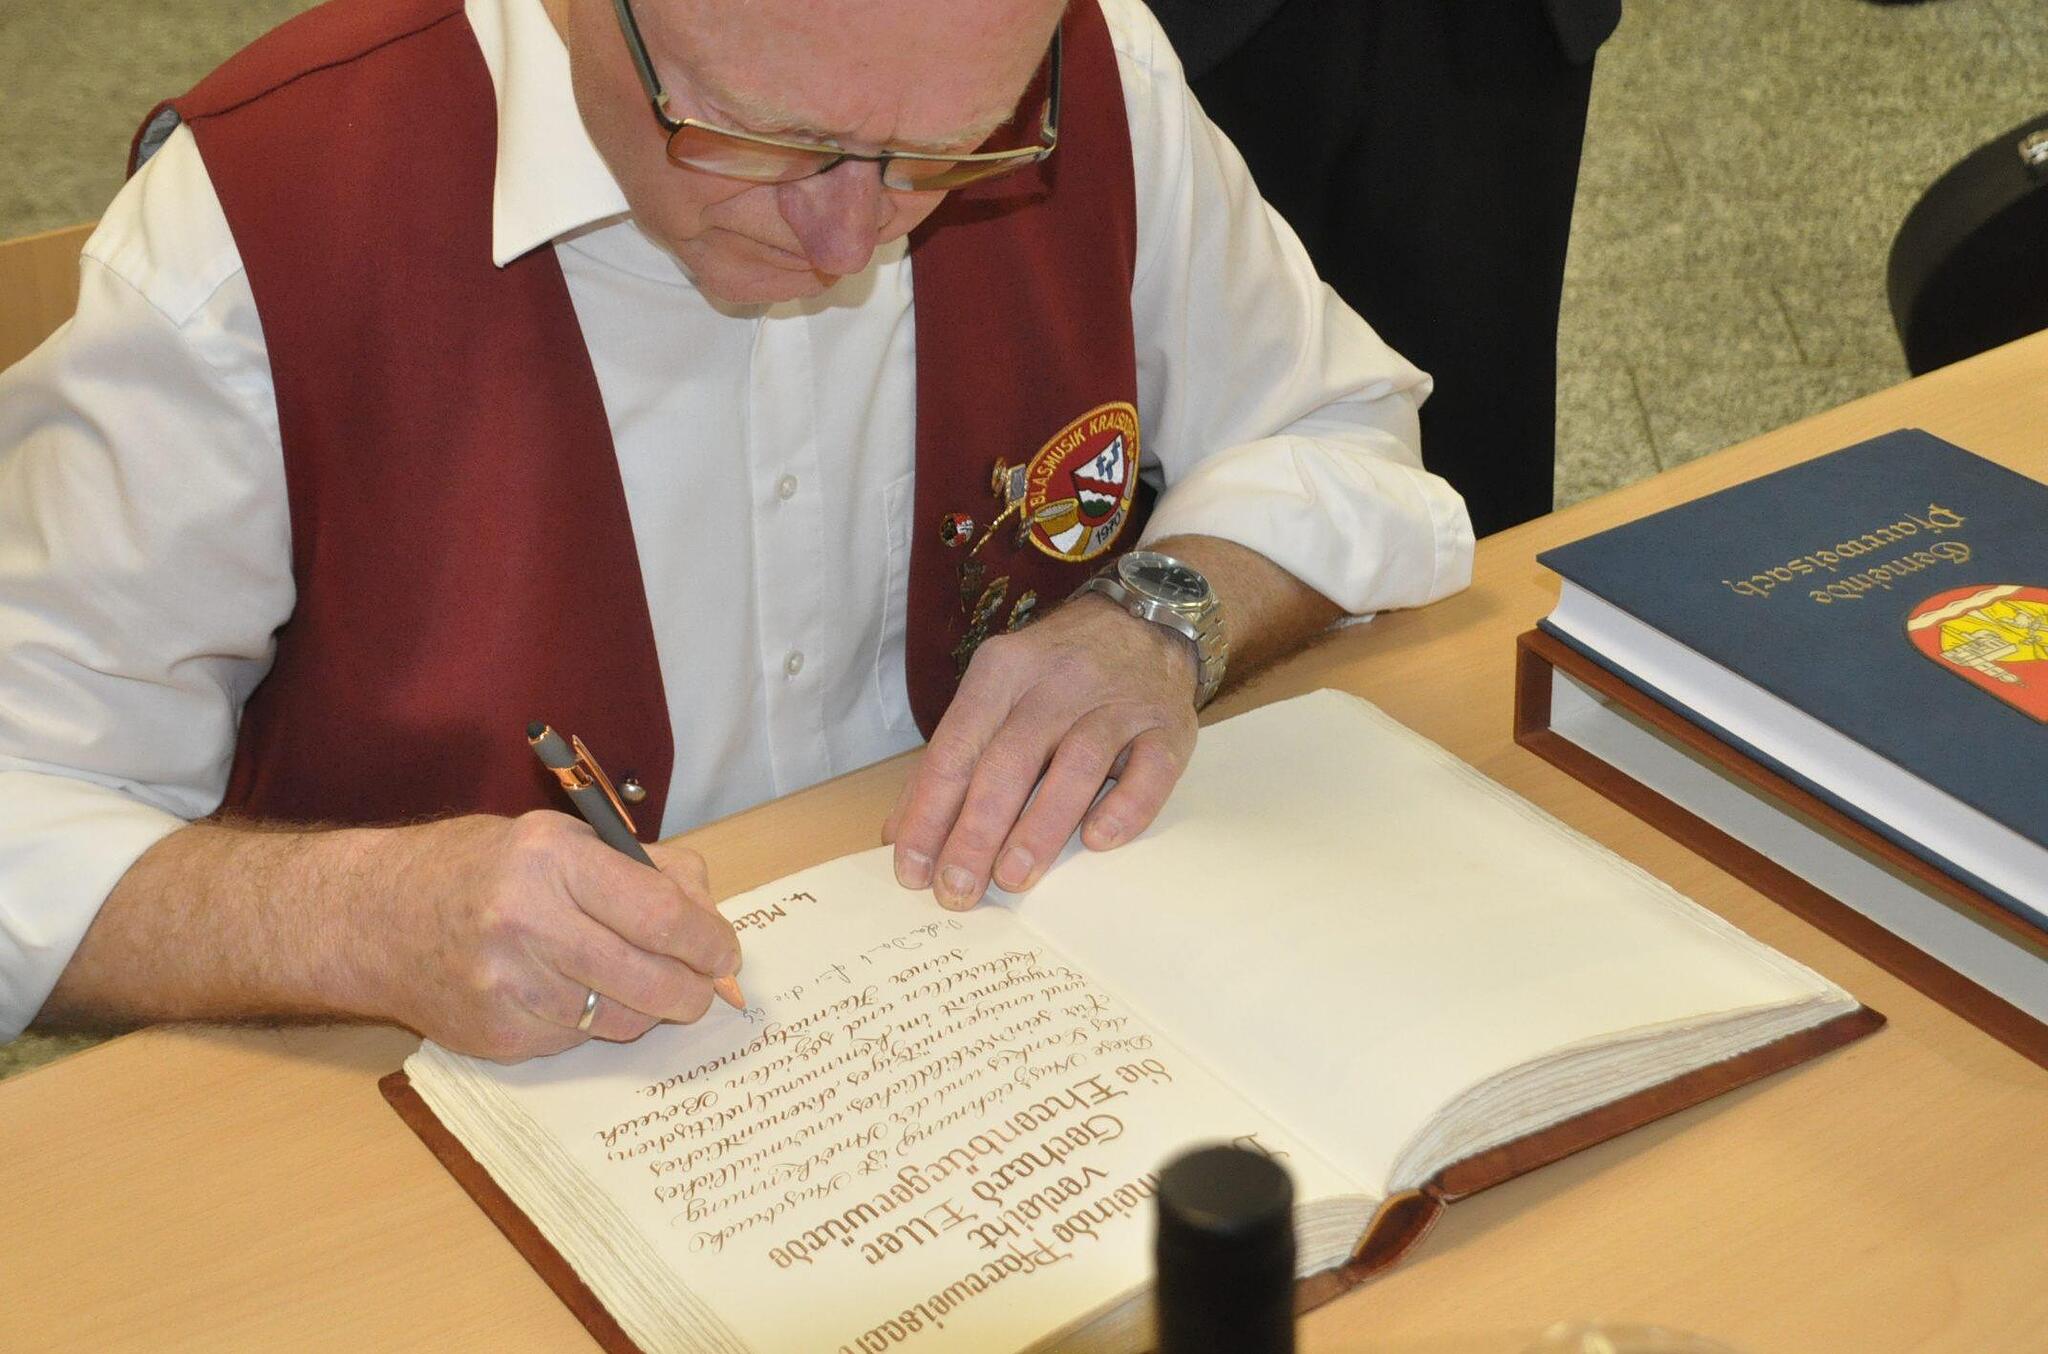 BLASMUSIK KRAISDORF
1970
Gemeinde
Pfarrweisach
meinde Pfarrweisach
verleiht
Gerhard Eller
die Ehrenbürgerwürde
Diese Auszeichnung ist Ausdruck
des Dankes und der Anerkennung
für sein vorbildliches, unermüdliches
und uneigennütziges, ehrenamtliches
Engagement im kommunalpolitischen,
kulturellen und sozialen Bereich
seiner Heimatgemeinde.
Vielen Dank für die
4. März